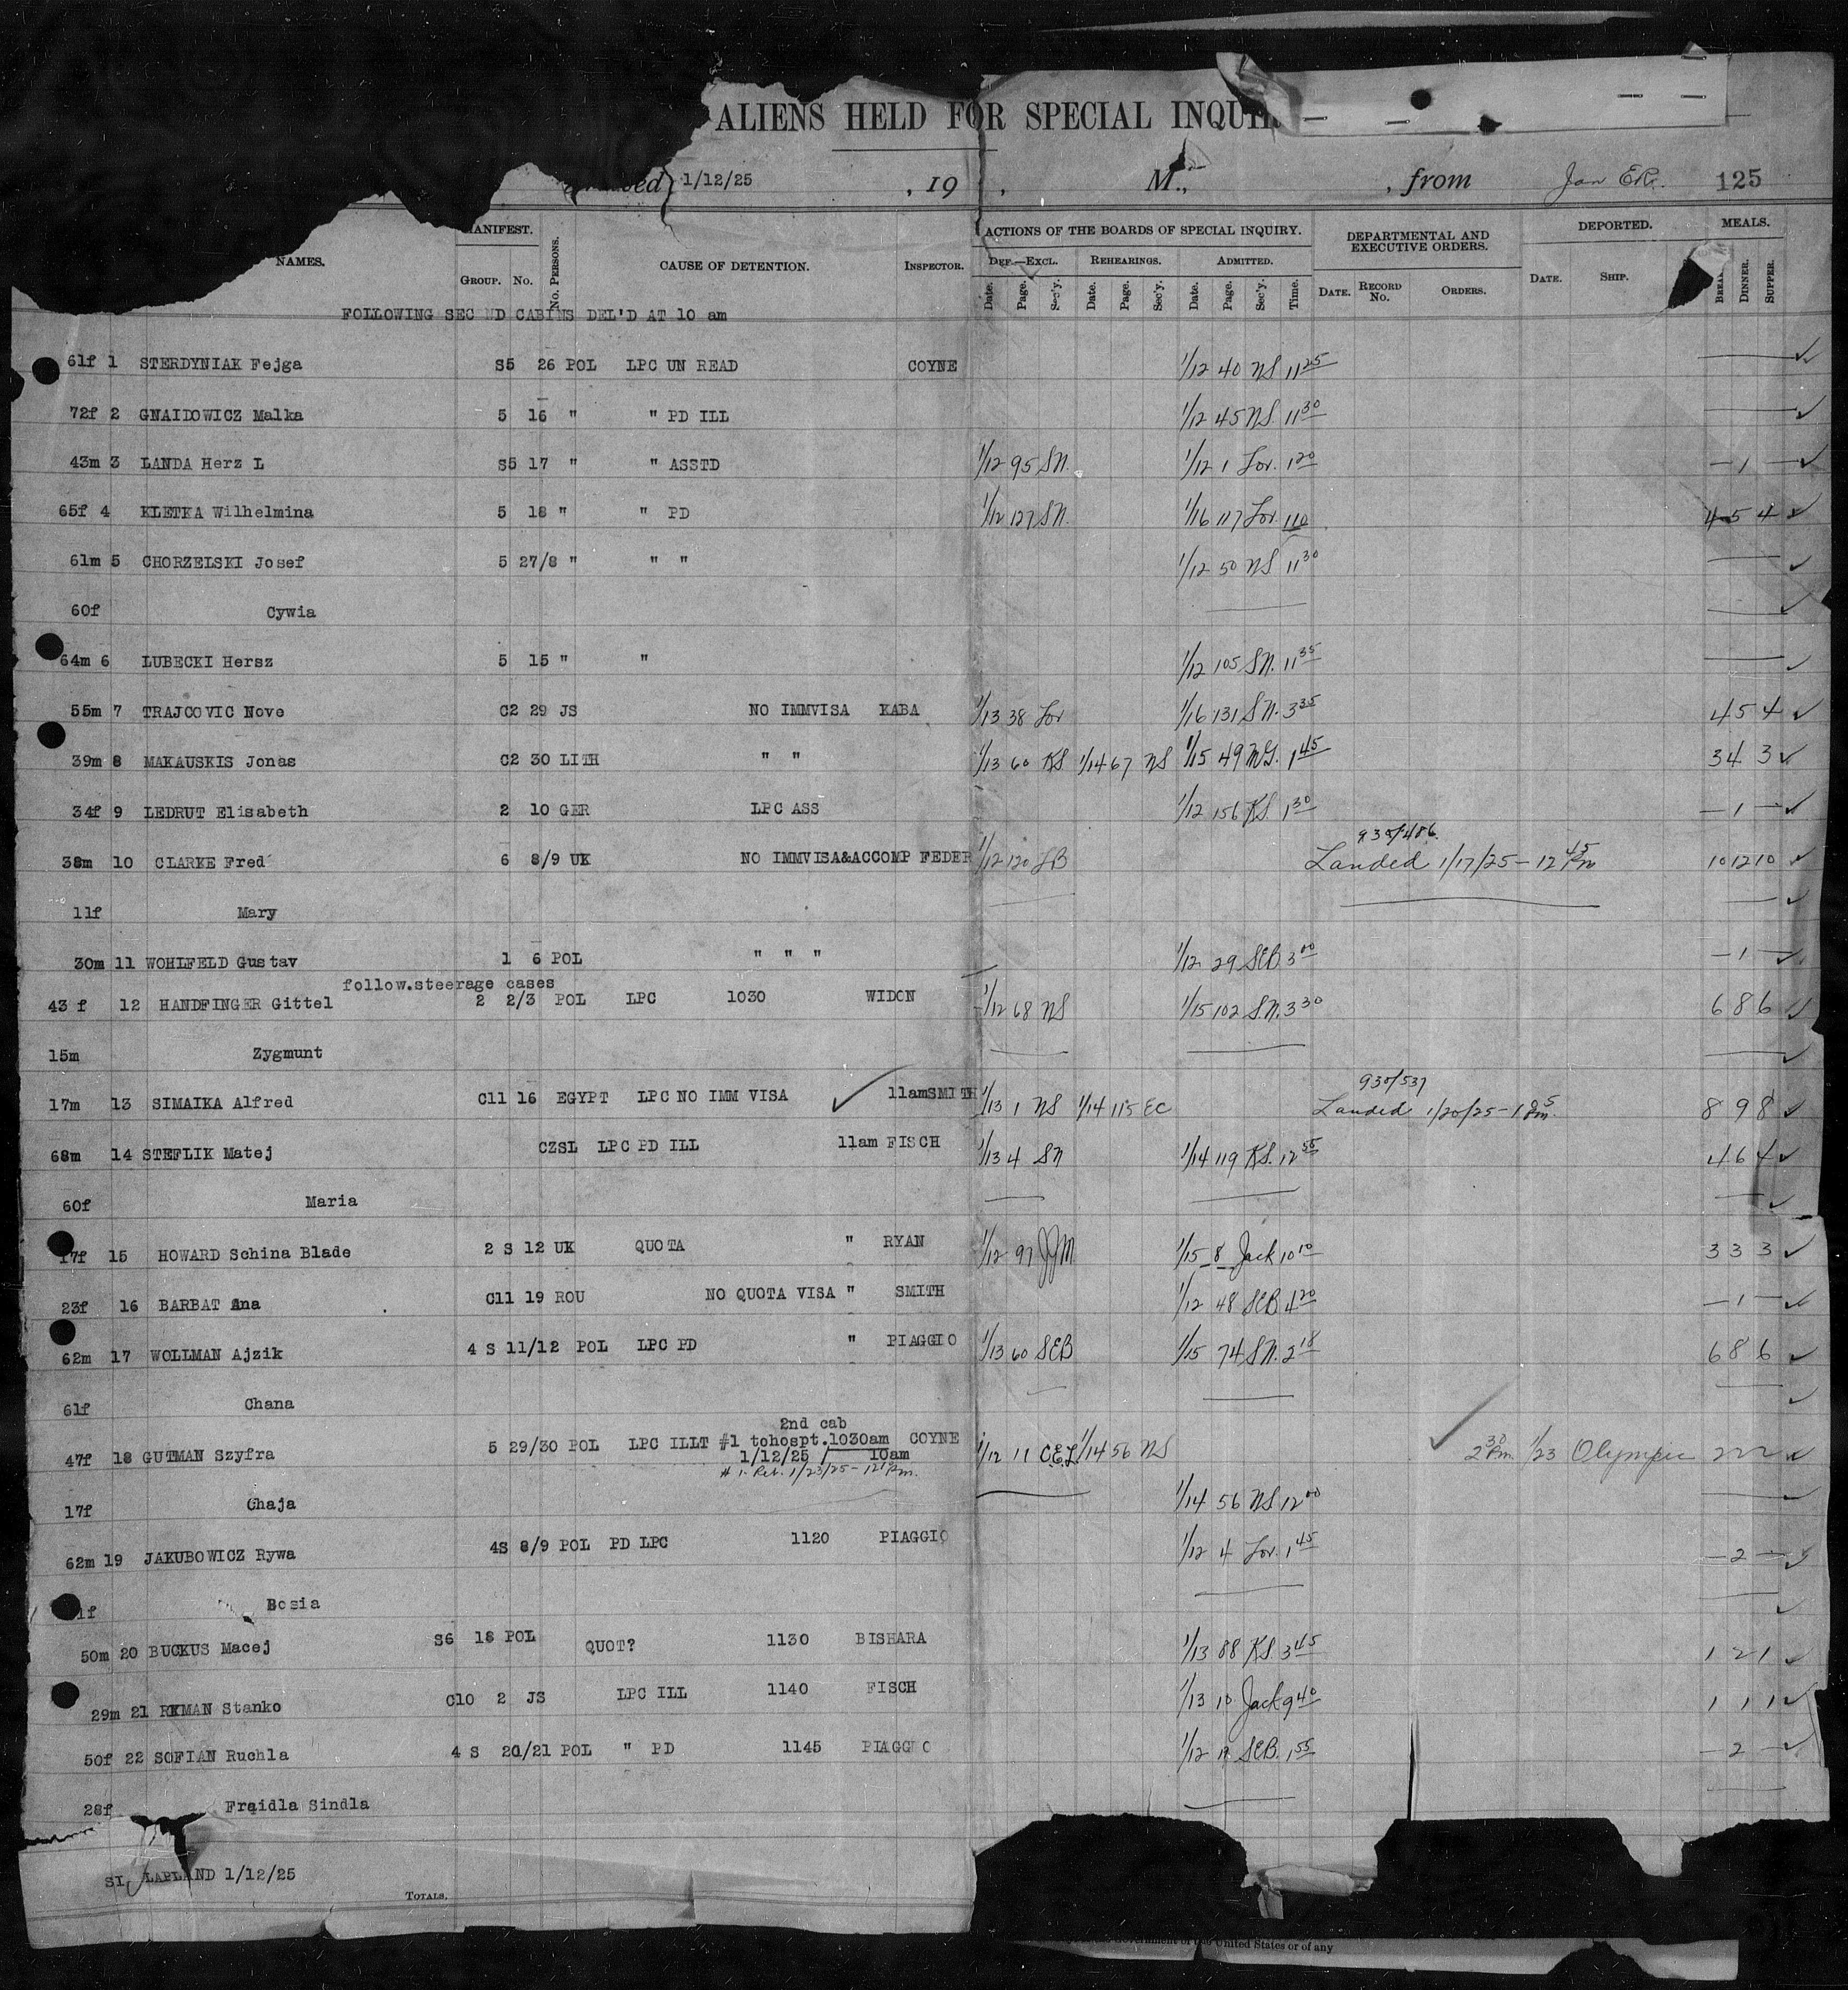 ALIENS HELD FOR SPECIAL
1/12/25 , 19 , M., , from Jan 125
NAMES. MANIFEST. GROUP. NO. No. PERSONS. CAUSE OF DETENTION. INSPECTOR. ACTIONS OF THE BOARDS OF SPECIAL INQUIRY. DEPARTMENTAL AND EXECUTIVE ORDERS. DEPORTED. MEALS.
DEF.—EXCL. REHEARINGS. ADMITTED.
Date. Page. Sec'y. Date. Page. Sec'y. Date. Page. Sec'y. Time. DATE. RECORD NO. ORDERS. DATE. SHIP. DINNER. SUPPER.
FOLLOWING SEC ND CABINS DEL'D AT 10 am
61f 1 STERDYNIAK Fejga S5 26 POL LPC UN READ COYNE 1/12 40 NS 11 25
72f 2 GNAIDOWICZ Malka 5 16 " " PD ILL 1/12 45 NS. 11 30
43m 3 LANDA Herz L S5 17 " " ASSTD 1/12 95 SN. 1/12 1 Lov. 1 20 — 1 —
65f 4 KLETKA Wilhelmina 5 18 " " PD 1/12 127 SN. 1/16 117 Lov. 1 10 4 5 4
61m 5 CHORZELSKI Josef 5 27/8 " " " 1/12 50 NS 11 30
60f Cywia
64m 6 LUBECKI Hersz 5 15 " " 1/12 105 SN. 11 35
55m 7 TRAJCOVIC Nove C2 29 JS NO IMMVISA KABA 1/13 38 Lov 1/16 131 SN. 3 35 4 5 4
39m 8 MAKAUSKIS Jonas C2 30 LITH " " 1/13 60 KS 1/14 67 NS 1/15 49 1 45 3 4 3
34f 9 LEDRUT Elisabeth 2 10 GER LPC ASS 1/12 156 KS. 1 30 — 1 —
930/486
38m 10 CLARKE Fred 6 8/9 UK NO IMMVISA&ACCOMP FEDER 1/12 120 Landed 1/17/25 – 12 45 Pm 10 12 10
11f Mary
30m 11 WOHLFELD Gustav 1 6 POL " " " 1/12 29 SEB. 3 00 — 1 —
follow.steerage cases
43 f 12 HANDFINGER Gittel 2 2/3 POL LPC 1030 WIDON 1/12 68 NS 1/15 102 SN. 3 30 6 8 6
15m Zygmunt
930/537
17m 13 SIMAIKA Alfred C11 16 EGYPT LPC NO IMM VISA 11amSMITH 1/13 1 NS 1/14 115 EC Landed 1/20/25 – 8 9 8
68m 14 STEFLIK Matej CZSL LPC PD ILL 11am FISCH 1/13 4 SN 1/14 119 KS. 12 55 4 6 4
60f Maria
17f 15 HOWARD Schina Blade 2 S 12 UK QUOTA " RYAN 1/12 97 JJM 1/15 8 Jack 10 10 3 3 3
23f 16 BARBAT Ana C11 19 ROU NO QUOTA VISA " SMITH 1/12 48 SEB. 4 20 — 1 —
62m 17 WOLLMAN Ajzik 4 S 11/12 POL LPC PD " PIAGGIO 1/13 60 SEB 1/15 74 SN. 2 18 6 8 6
61f Chana
2nd cab
47f 18 GUTMAN Szyfra 5 29/30 POL LPC ILLT #1 tohospt.1030am COYNE 1/12 11 C.E.L. 1/14 56 NS 2 30 Pm. 1/23 Olympic
1/12/25 / 10am
# 1- Ret. 1/23/25 –
17f Chaja 1/14 56 NS 12 00
62m 19 JAKUBOWICZ Rywa 4S 8/9 POL PD LPC 1120 PIAGGIO 1/12 4 Lov. 1 45 — 2 —
1f Bosia
50m 20 BUCKUS Macej S6 18 POL QUOT? 1130 BISHARA 1/13 88 KS. 3 45 1 2 1
29m 21 RKMAN Stanko C10 2 JS LPC ILL 1140 FISCH 1/13 10 Jack 9 40 1 1 1
50f 22 SOFIAN Ruchla 4 S 20/21 POL " PD 1145 PIAGGIO 1/12 SEB. 1 55 — 2 —
28f Fraidla Sindla
SI, LAPLAND 1/12/25
TOTALS.
United States or of any